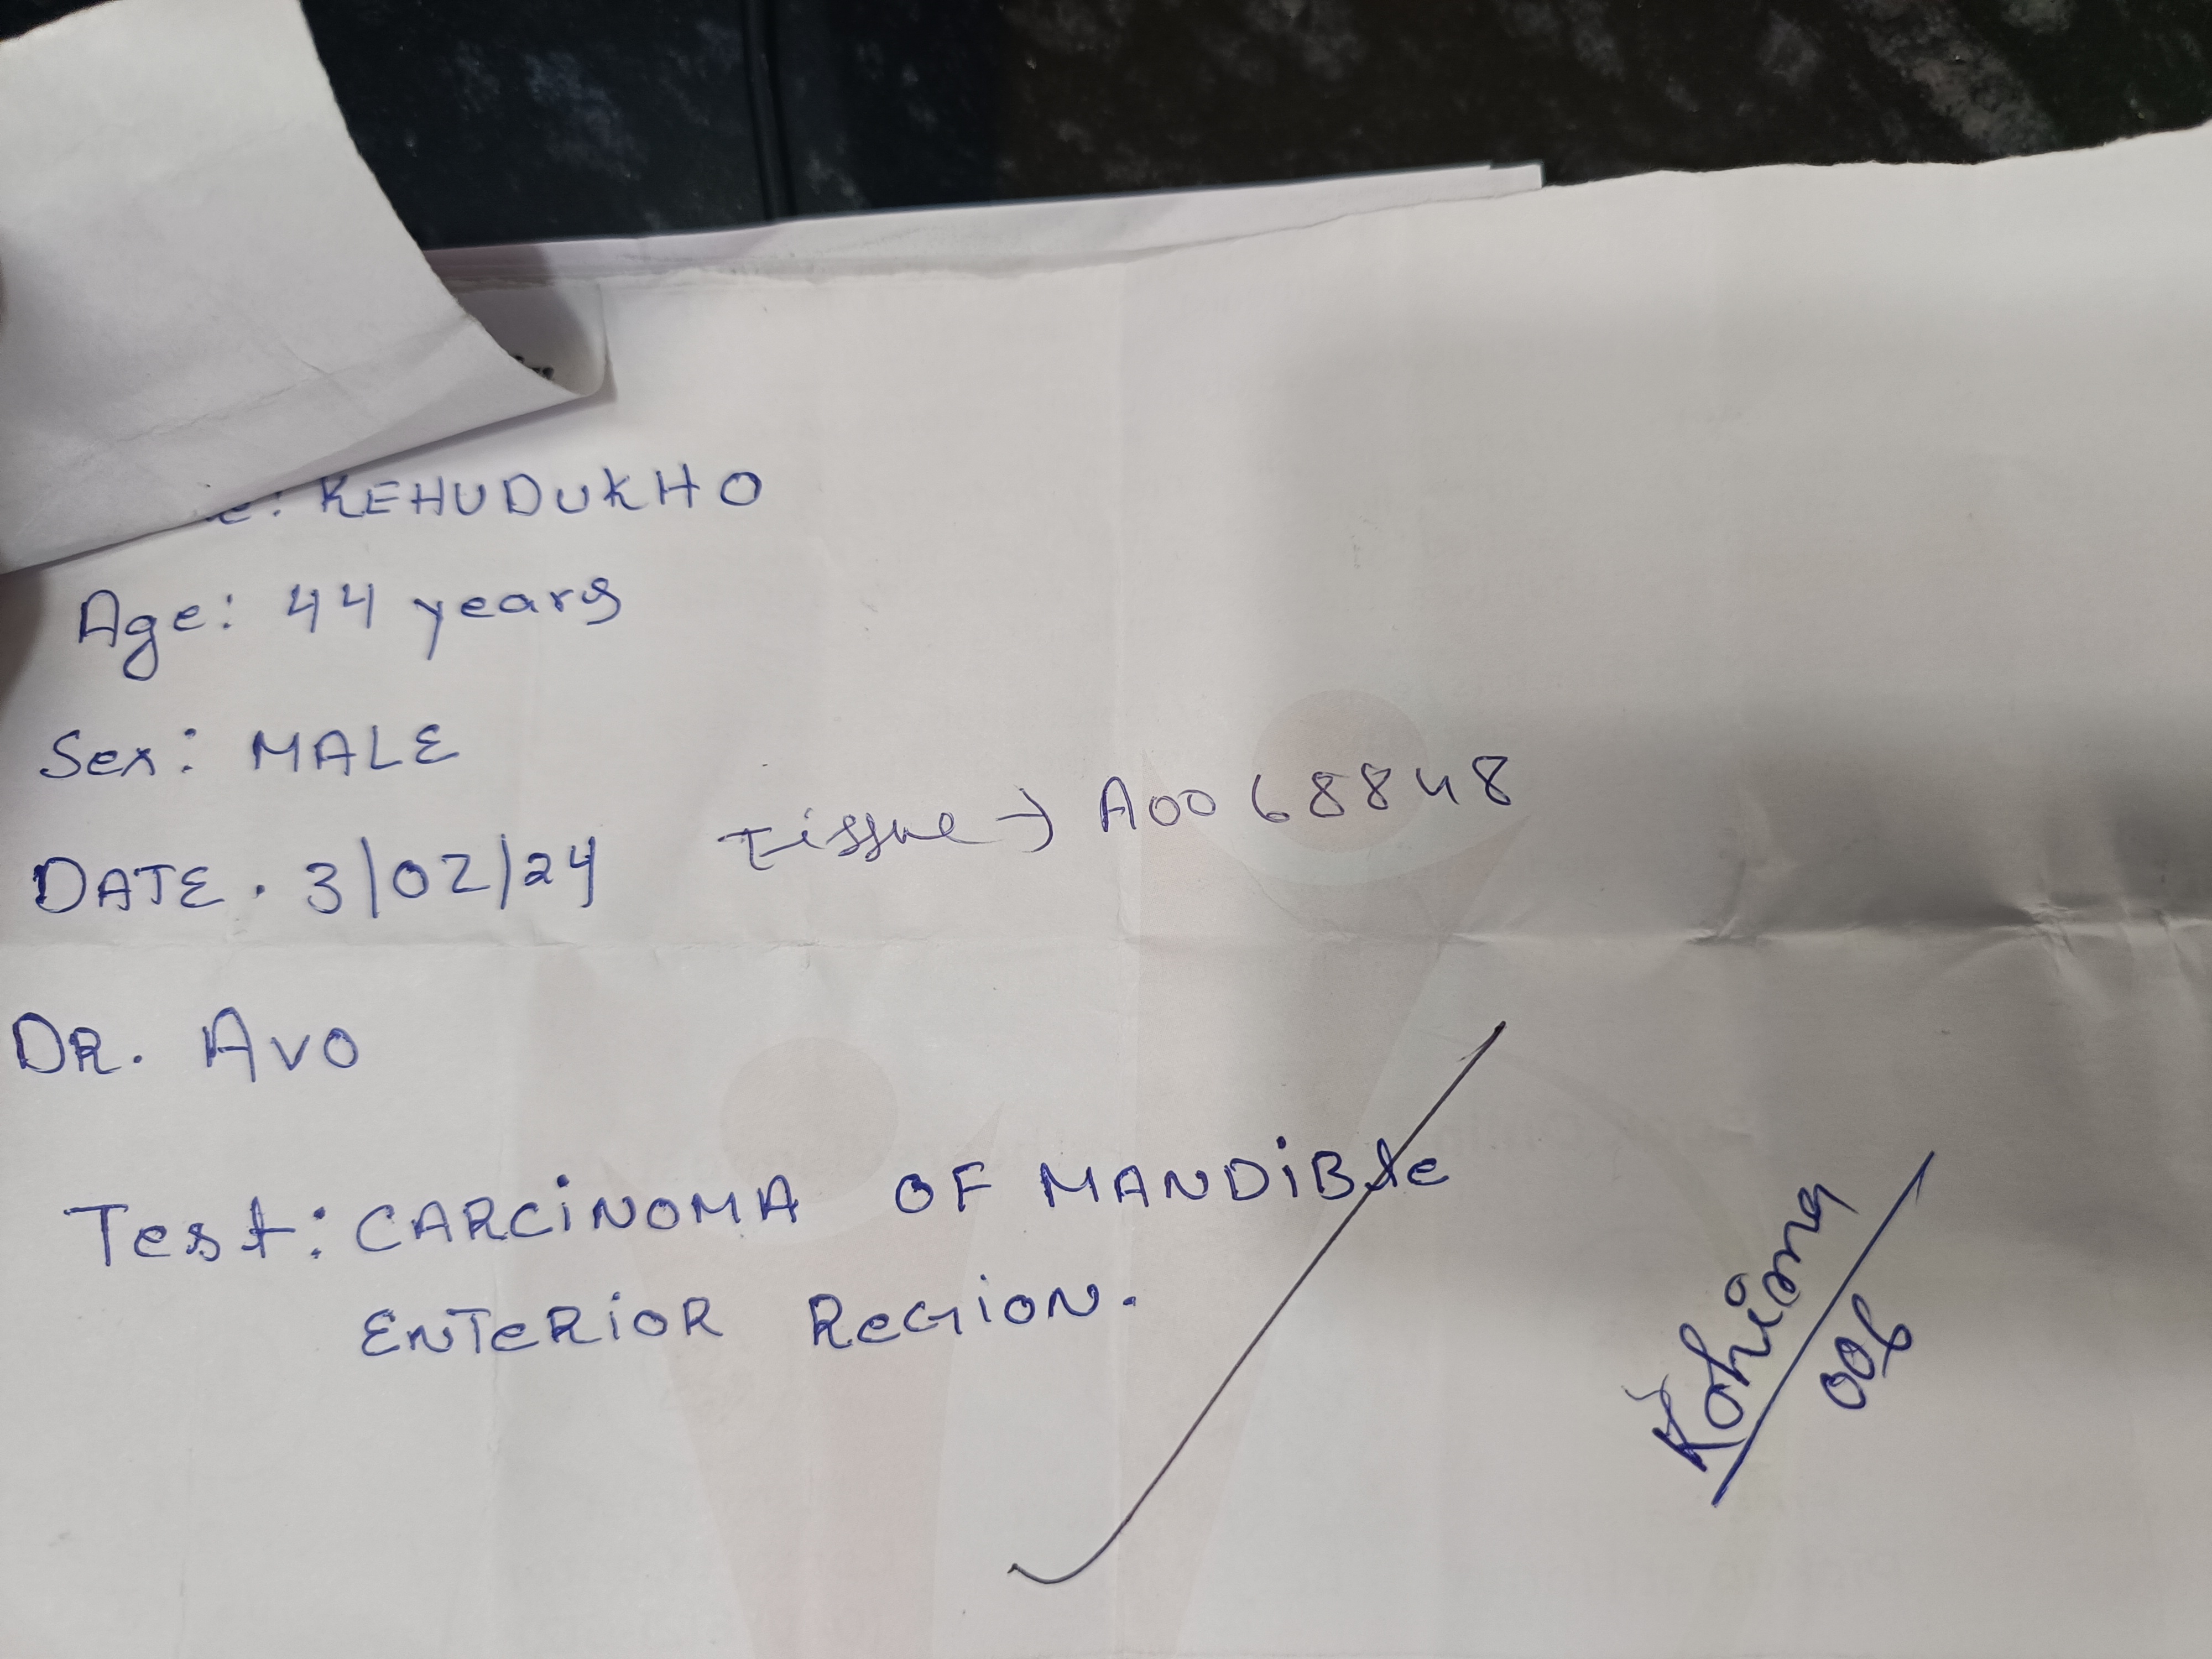 e: KEHUDUKHO
Age: 44 years
Sex: MALE
DATE. 3/02/24
tissue → A0068848
DR. AVO
Test: CARCINOMA OF MANDIBLE
ENTERIOR REGION.